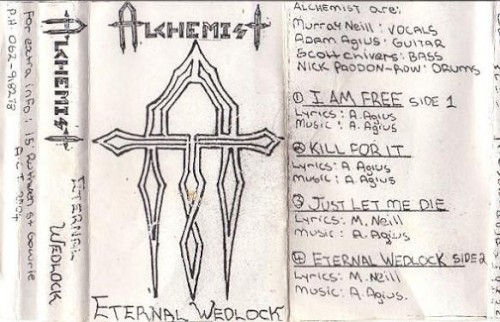 For extra info: 15 Ruthven st Gowrie
A.C.T 2904
P.H 062-918278
ALCHEMIST
ETERNAL
WEDLOCK
ALCHEMIST
ETERNAL WEDLOCK
ALCHEMIST are:
Murray Neill: VOCALS
Adam Agius: GUITAR
Scott Chivers: BASS
NICK PADDON-ROW: DRUMS
① I AM FREE SIDE 1
Lyrics: A. Agius
Music: A. Agius
② KILL FOR IT
Lyrics: A. Agius
Music: A. Agius
③ JUST LET ME DIE
Lyrics: M. Neill
Music: A. Agius
④ ETERNAL WEDLOCK SIDE 2
Lyrics: M. Neill
Music: A. Agius.